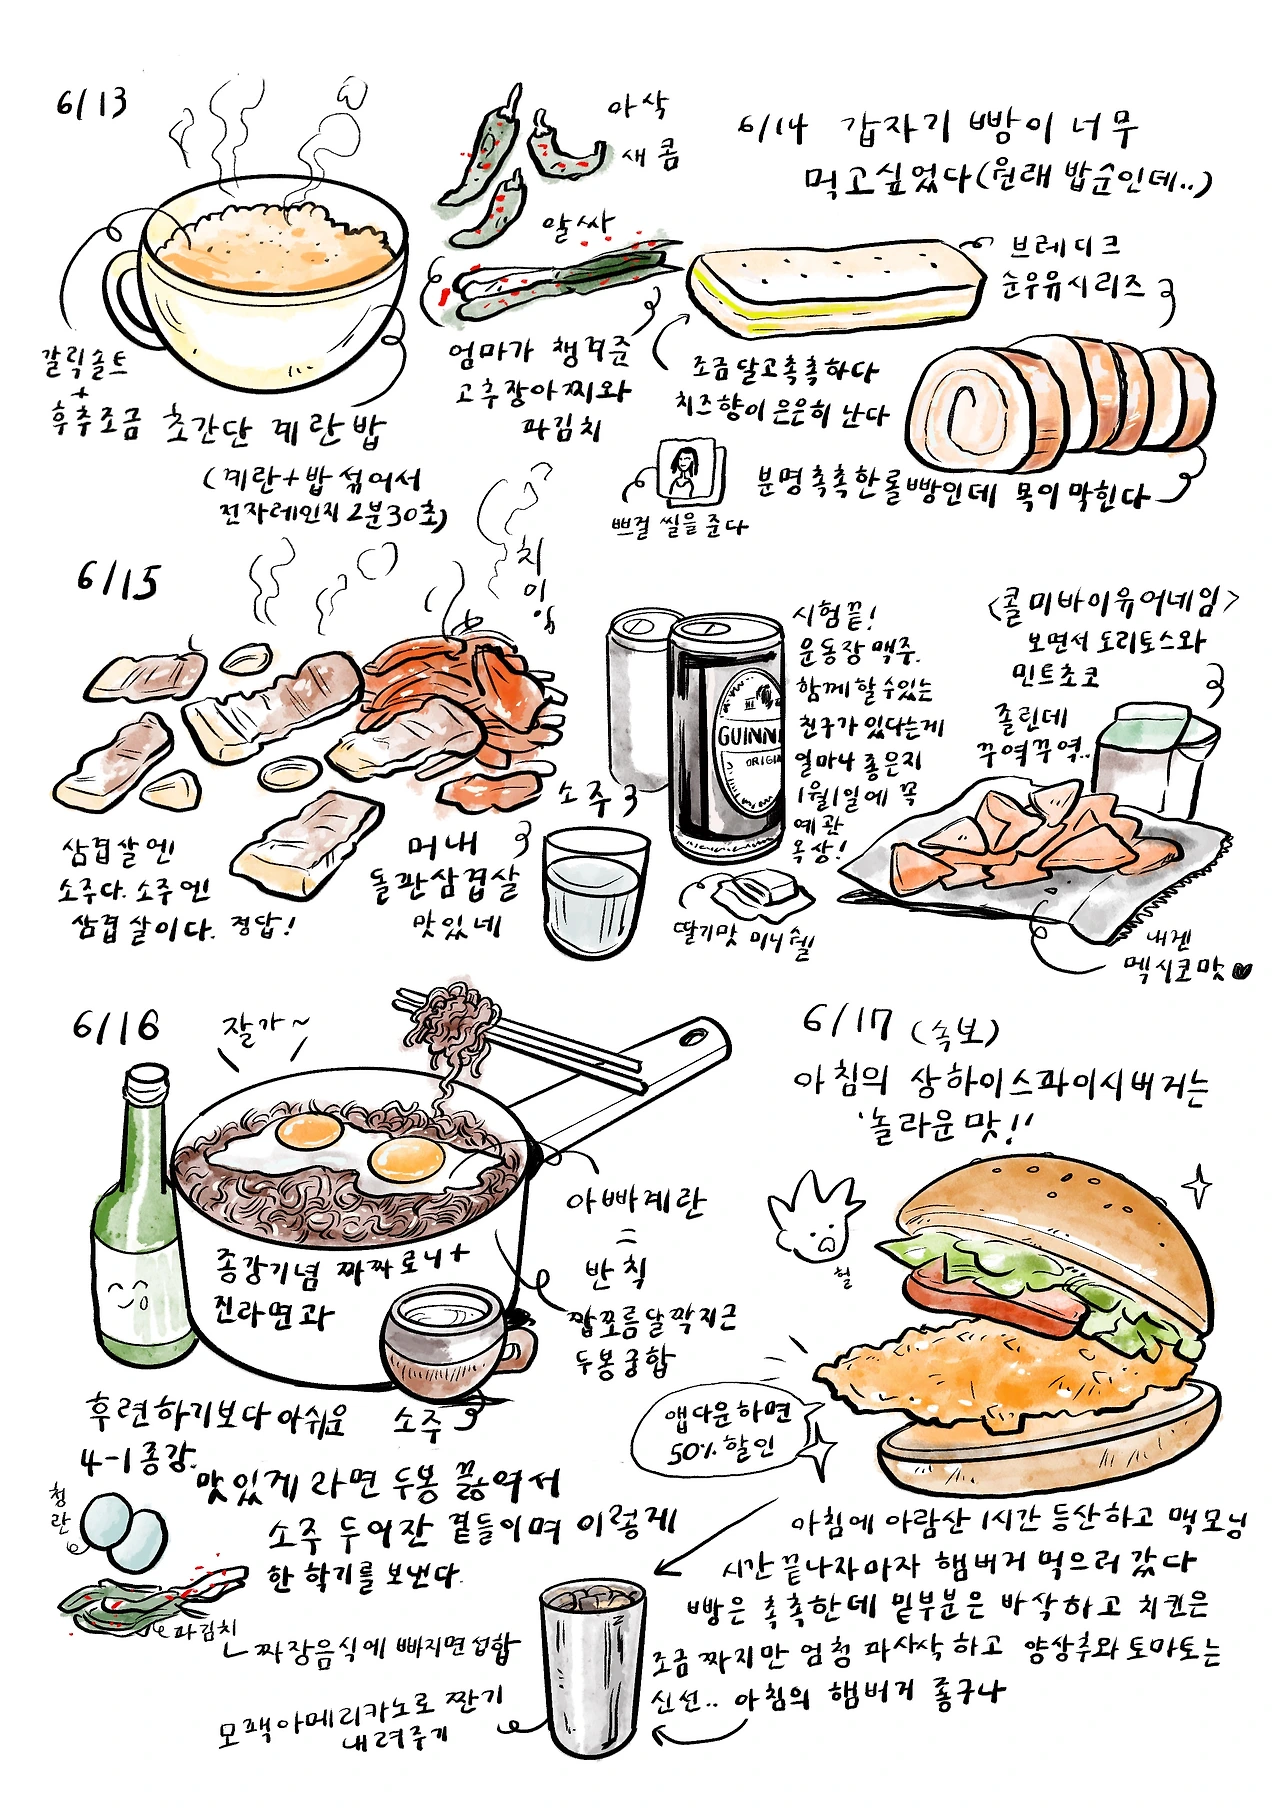 6/13
아삭
새콤
알싸
갈릭솔트
+
후추조금
초간단 계란밥
(계란+밥 섞어서
전자레인지 2분30초)
엄마가 챙겨준
고추장아찌와
파김치
6/14 갑자기 빵이 너무
먹고싶었다(원래 밥순인데..)
브레디크
순우유시리즈
조금달고촉촉하다
치즈향이 은은히 난다
분명촉촉한롤빵인데 목이 막힌다
쁘걸 씰을 준다
6/15
치이익
삼겹살엔!
소주다. 소주엔!
삼겹살이다. 정답!
머내
돌판삼겹살
맛있네
소주
시험끝!
운동장 맥주.
함께할 수있는
친구가 있다는게
얼마나 좋은지
1월1일에 꼭
예관
옥상!
딸기맛 미니쉘
<콜미바이유어네임>
보면서 도리토스와
민트초코
졸린데
꾸역꾸역..
내겐
멕시코맛♥
6/16
잘가~
아빠계란
=
반칙
짭쪼름달짝지근
두봉궁합
종강기념 짜짜로니+
진라면과
소주
후련하기보다 아쉬운
4-1종강.
맛있게 라면 두봉 끓여서
소주 두어잔 곁들이며 이렇게
한 학기를 보낸다.
청란
파김치
짜장음식에 빠지면 섭함
6/17 (속보)
아침의 상하이스파이시버거는
'놀라운 맛!!'
헐
앱다운하면
50% 할인
아침에 아람산 1시간 등산하고 맥모닝
시간 끝나자마자 햄버거 먹으러 갔다
빵은 촉촉한데 밑부분은 바삭하고 치킨은
조금 짜지만 엄청 파사삭하고 양상추와 토마토는
신선.. 아침의 햄버거 좋구나
모팩아메리카노로 짠기
내려주기
GUINN
ORIGI